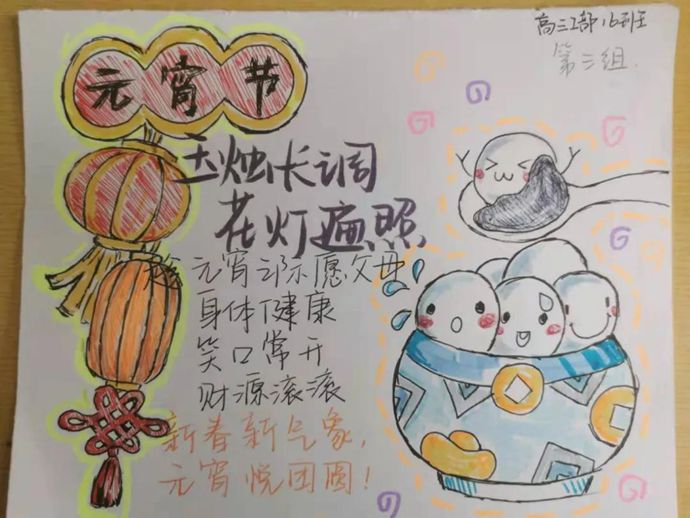 元宵节
高三1部16班
第三组
玉烛长调
花灯遍照
趁元宵之际愿父母
身体健康
笑口常开
财源滚滚
新春新气象，
元宵悦团圆！